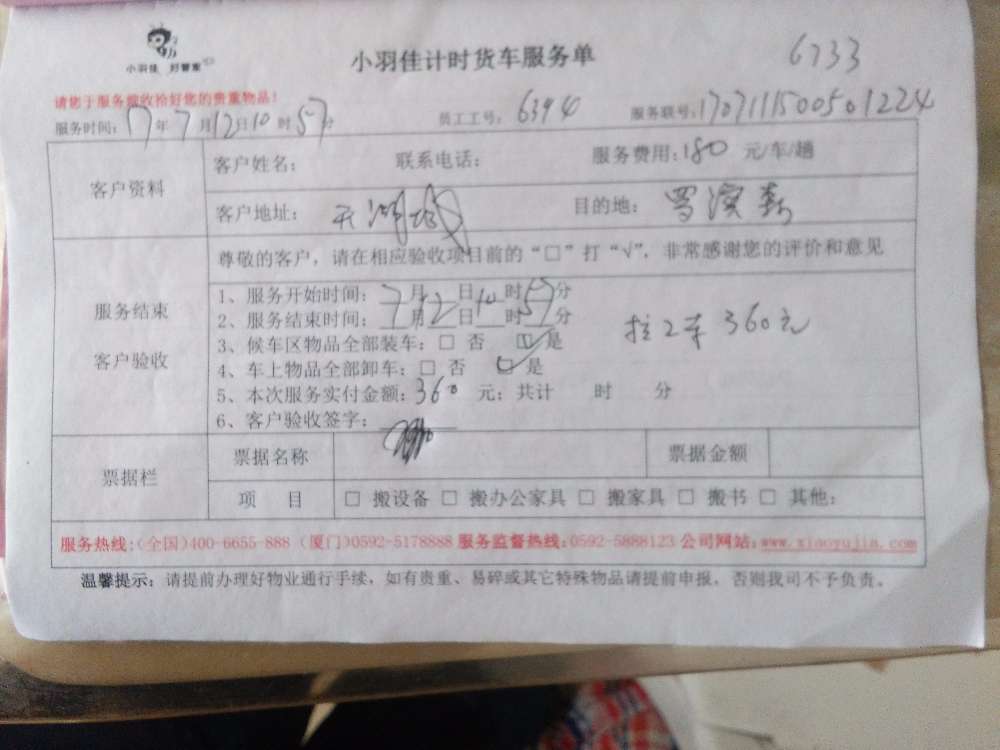 小羽佳 好管家
小羽佳计时货车服务单
6733
请您于服务前收拾好您的贵重物品!
服务时间: 17年7月12日10时57分 员工工号: 6394 服务联号: 1707111500501224
客户资料
客户姓名: 联系电话: 服务费用:180 元/车/趟
客户地址: 天湖城 目的地:
尊敬的客户, 请在相应验收项目前的“□”打“√”, 非常感谢您的评价和意见
服务结束
客户验收
1、服务开始时间: 7月12日10时57分
2、服务结束时间: 月 日 时 分
3、候车区物品全部装车: □ 否 ☑ 是
拉2车 360元
4、车上物品全部卸车: □ 否 ☑ 是
5、本次服务实付金额: 360 元; 共计 时 分
6、客户验收签字:
票据栏
票据名称 票据金额
项 目 □ 搬设备 □ 搬办公家具 □ 搬家具 □ 搬书 □ 其他:
服务热线:(全国)400-6655-888 (厦门)0592-5178888 服务监督热线:0592-5888123 公司网站:www.xiaoyujia.com
温馨提示: 请提前办理好物业通行手续, 如有贵重、易碎或其它特殊物品请提前申报, 否则我司不予负责。